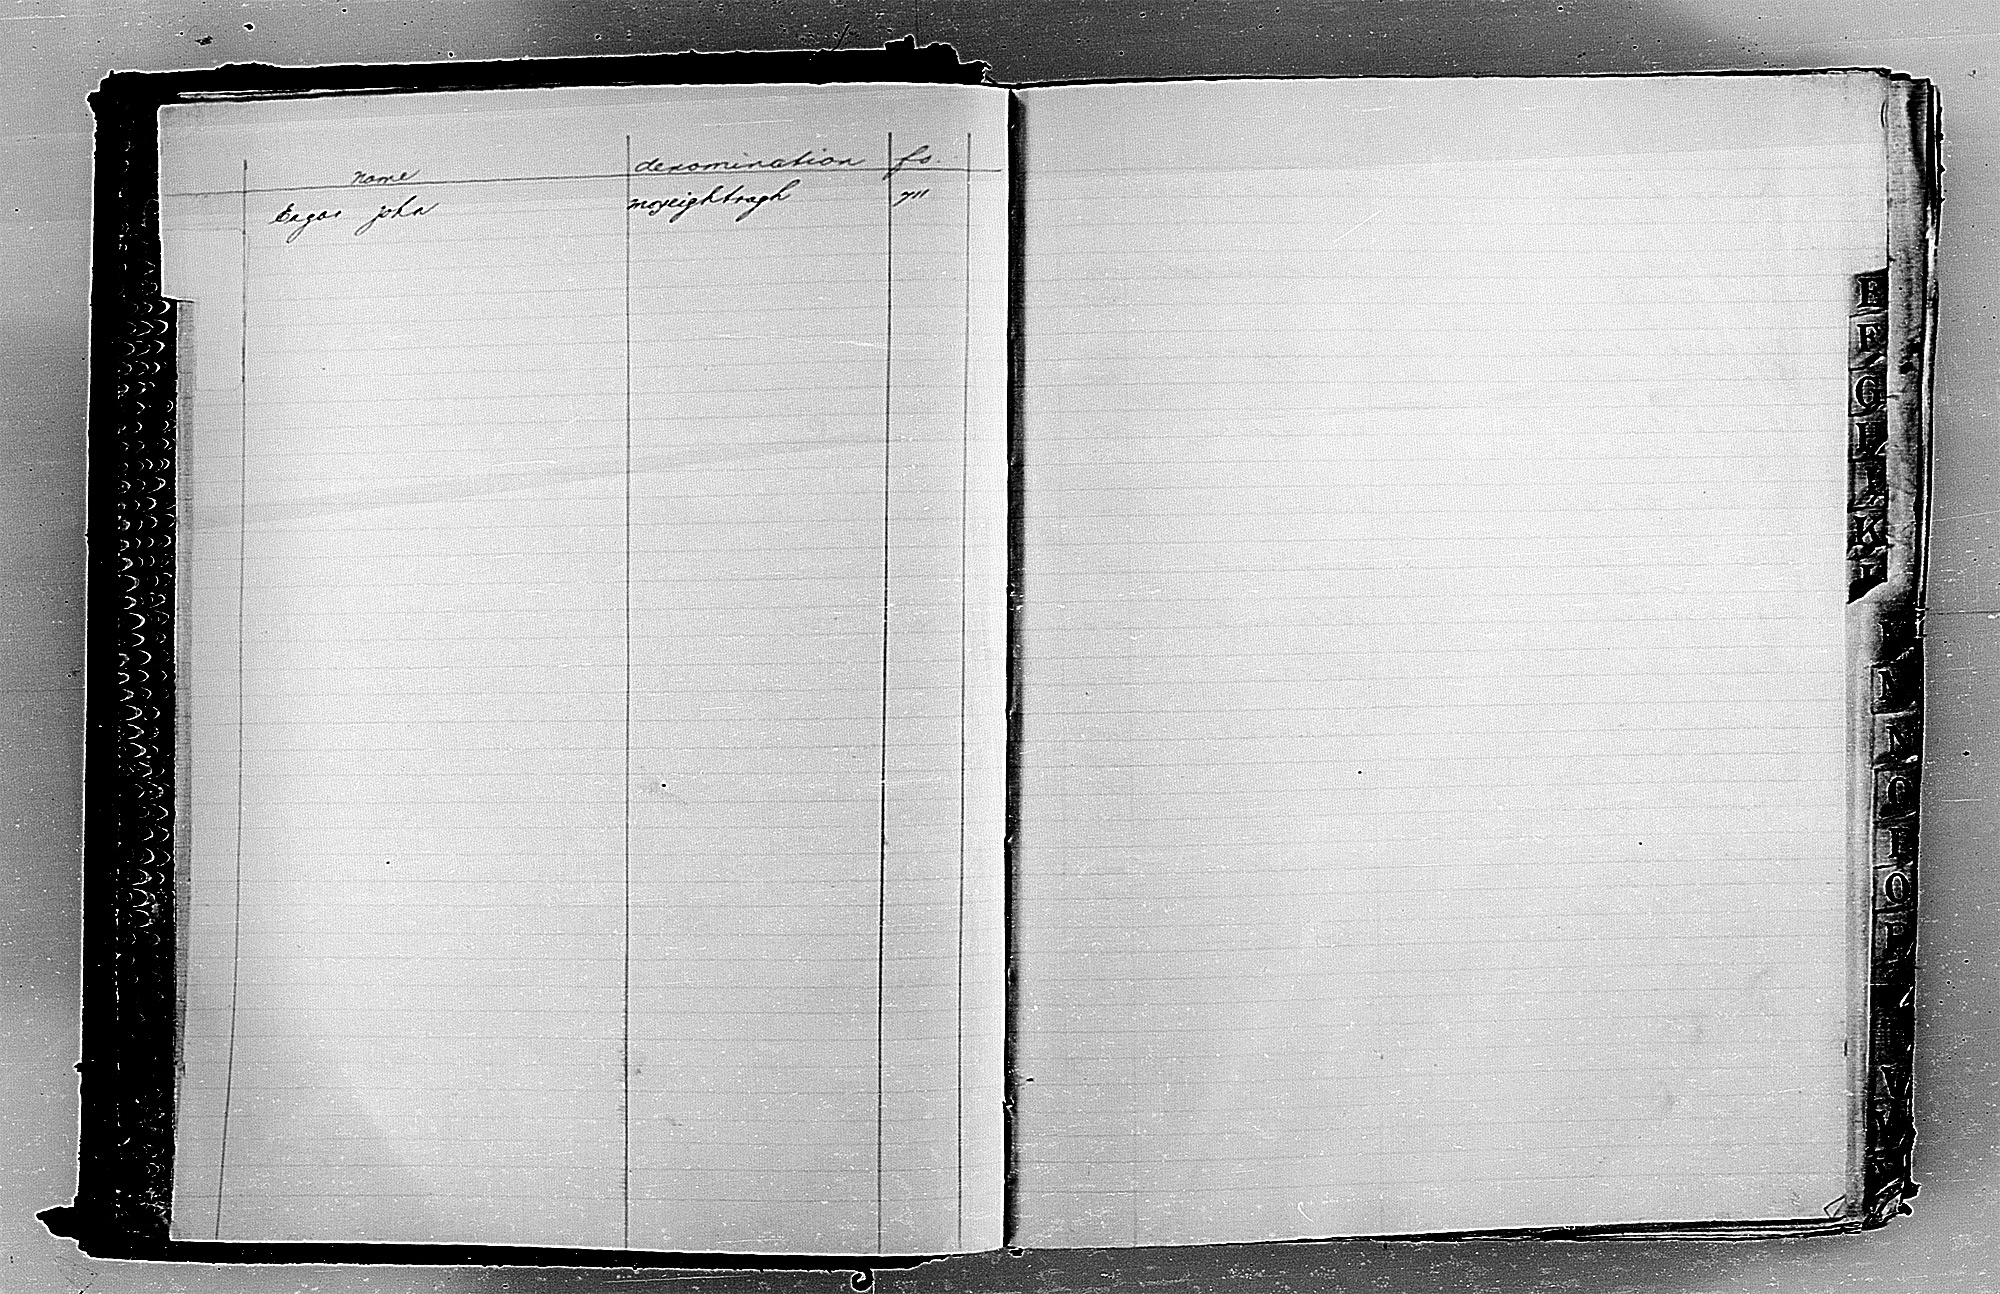 name denomination fo.
Eagar john moyeightragh 711
E
F
G
H
I
K
L
M
N
O